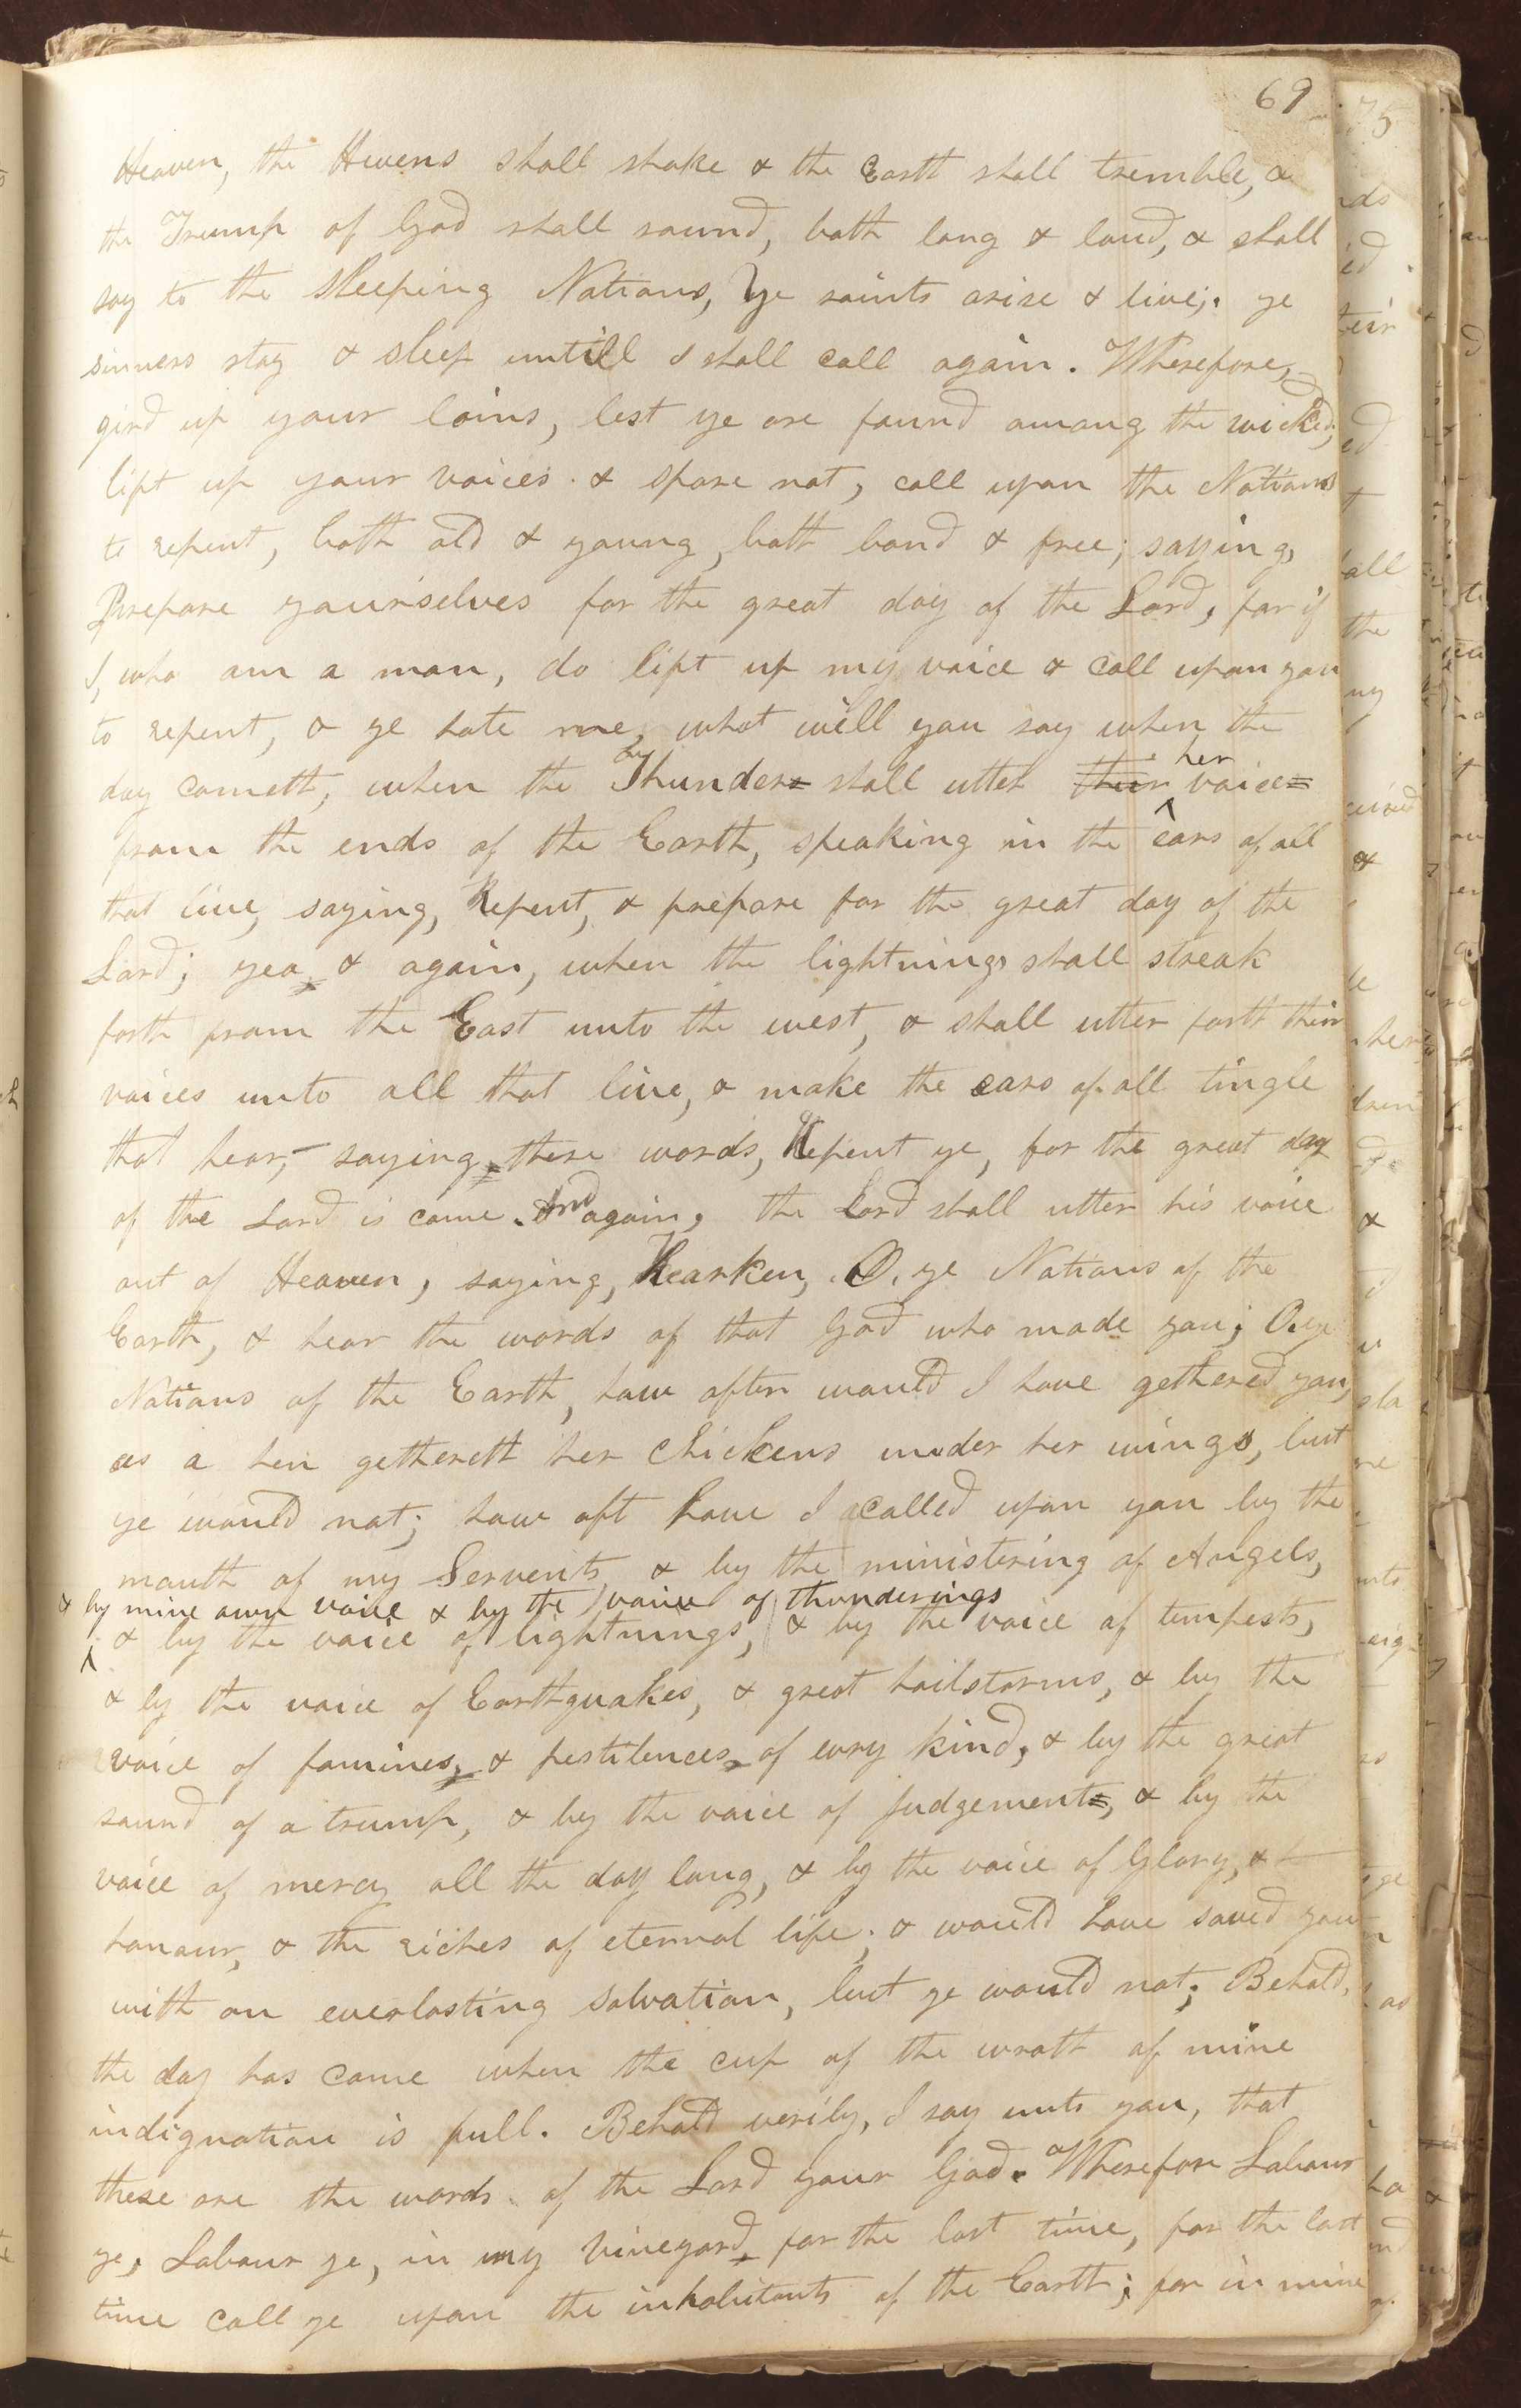 69
Heaven, the Hevens shall shake & the Earth shall tremble, &
the Trump of God shall sound, both long & loud, & shall
say to the sleeping Nations, ye saints arise & live; ye
sinners stay & sleep untill I shall call again. Wherefore,
gird up your loins, lest ye are found among the wicked;
lift up your voices & spare not, call upon the Nations
to repent, both old & young, both bond & free; saying,
Prepare yourselves for the great day of the Lord, for if
I, who am a man, do lift up my voice & call upon you
to repent, & ye hate me, what will you say when the
day cometh, when the Thunders shall utter their her voices
from the ends of the Earth, speaking in the ears of all
that live, saying, Repent, & prepare for the great day of the
Lord; yea, & again, when the lightnings shall streak
forth from the East unto the west, & shall utter forth their
voices unto all that live, & make the ears of all tingle
that hear, saying, these words, Repent ye, for the great day
of the Lord is come. And again, the Lord shall utter his voice
out of Heaven, saying, Hearken, O, ye Nations of the
Earth, & hear the words of that God who made you; O, ye
Nations of the Earth, how often would I have gethered you,
as a hen gethereth her chickens under her wings, but
ye would not; how oft have I called upon you by the
mouth of my Servents, & by the ministering of Angels,
& by mine own voice & by the voice of thunderings
& by the voice of lightnings, & by the voice of tempests,
& by the voice of Earthquakes, & great hailstorms, & by the
voice of famines, & pestilences, of evry kind, & by the great
sound of a trump, & by the voice of judgements, & by the
voice of mercy all the day long, & by the voice of Glory, &
honour, & the riches of eternal life; & would have saved you
with an everlasting salvation, but ye would not; Behold,
the day has come when the cup of the wrath of mine
indignation is full. Behold verily, I say unto you, that
these are the words of the Lord your God. Wherefore Labour
ye, Labour ye, in my vineyard, for the last time, for the last
time call ye upon the inhabitants of the Earth; for in mine